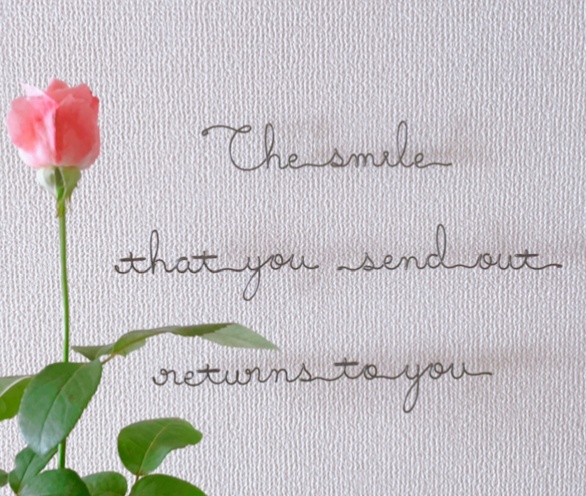 The smile
that you send out
returns to you